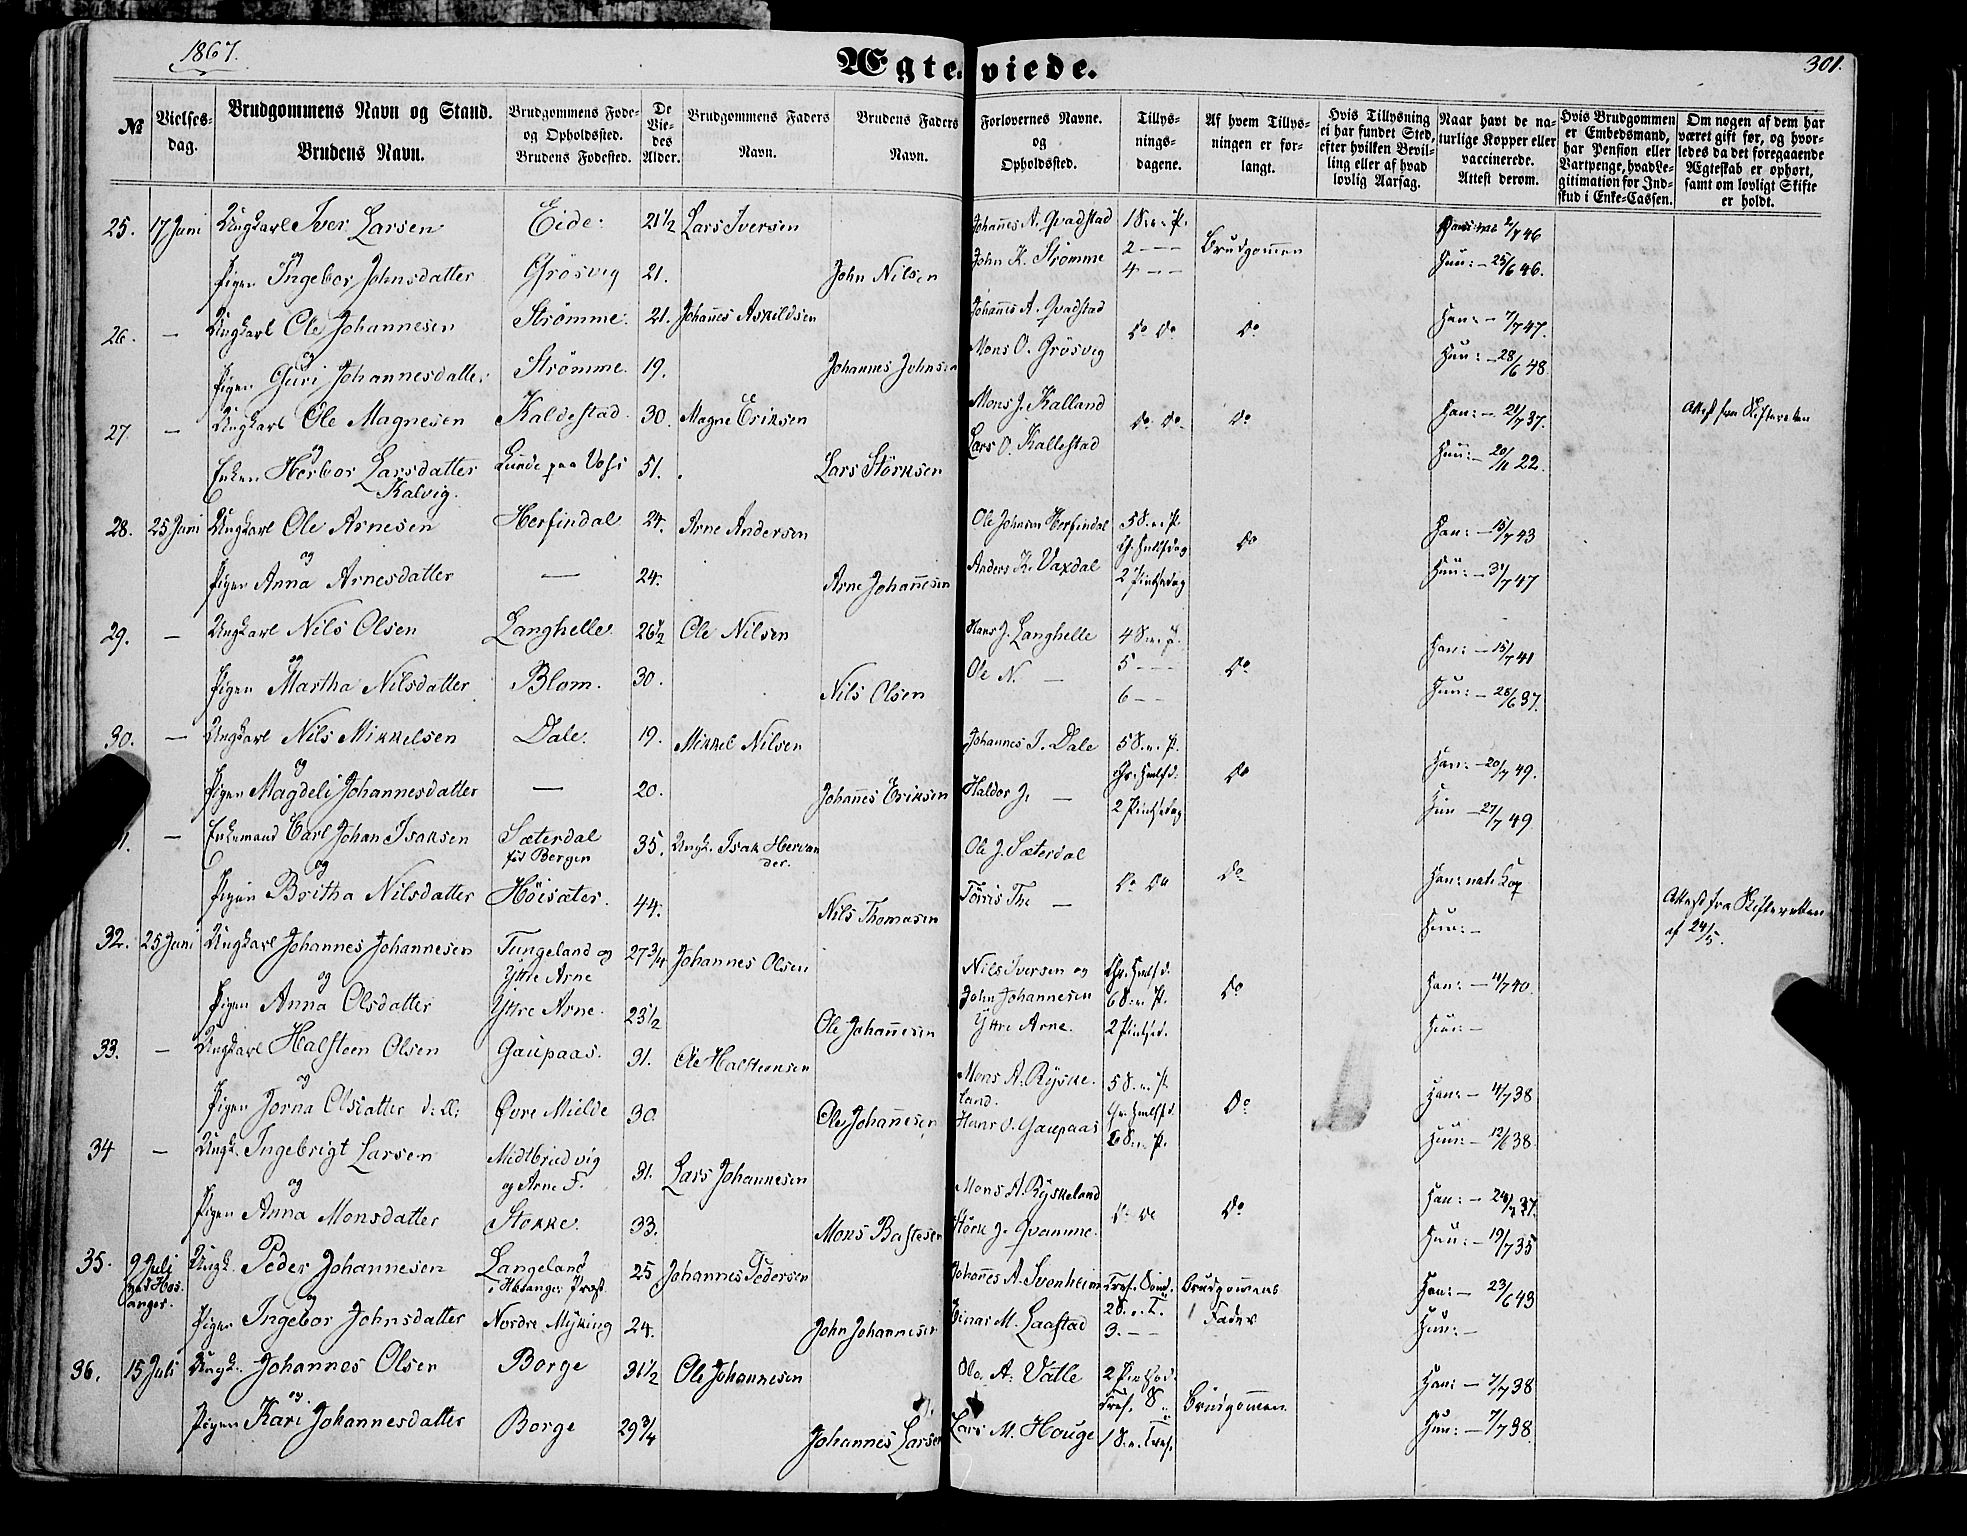 1867.
Ægteviede.
301.
№
Vielses-
dag.
Brudgommens Navn og Stand.
Brudens Navn.
Brudgommens Føde-
og Opholdssted.
Brudens Fødested.
De
Vie-
des
Alder.
Brudgommens Faders
Navn.
Brudens Faders
Navn.
Forlovernes Navne.
og
Opholdssted.
Tillys-
nings-
dagene.
Af hvem Tillys-
ningen er for-
langt.
Hvis Tillysning
ei har fundet Sted,
efter hvilken Bevil-
ling eller af hvad
lovlig Aarsag.
Naar havt de na-
turlige Kopper eller
vaccinerede.
Attest derom.
Hvis Brudgommen
er Embedsmand,
har Pension eller
Vartpenge, hvad Le-
gitimation for Ind-
skud i Enke-Cassen.
Om nogen af dem har
været gift før, og hvor-
ledes da det foregaaende
Ægteskab er ophørt,
samt om lovligt Skifte
er holdt.
25. 17 Juni Ungkarl Iver Larsen Eide. 21½ Lars Iversen Johannes A. Qvadstad 1 S. e. P. 2/7 46
og
Pigen Ingebor Johnsdatter Grøsvig 21. John Nilsen John K. Strømme 2 — — Brudgommen Hun: — 25/6 46.
4 — —
26. — Ungkarl Ole Johannesen Strømme. 21. Johannes Askildsen Johannes A. Qvadstad Do Do Do Han: — 7/7 47.
og
Pigen Guri Johannesdatter Strømme. 19. Johannes Johnsen Mons O. Grøsvig Hun: — 28/6 48
27. — Ungkarl Ole Magnesen Kaldestad. 30. Magne Eriksen Mons J. Kalland Do Do Do Han: — 21/7 37. Attest fra Skifteretten
og
Enken Herbor Larsdatter Lunde paa Voss 51. Lars Størksen Lars O. Kallestad Hun: — 20/11 22.
Kalvig.
28. 25 Juni Ungkarl Ole Arnesen Herfindal 24. Arne Andersen Ole Johnsen Herfindal 5 S. e. P. Do Han: — 15/7 43
og
Pigen Anna Arnesdatter — 24. Arne Johannesen Anders K. Vaxdal 2 Pintsedag Hun: — 31/7 47
29. — Ungkarl Nils Olsen Langhelle. 26½ Ole Nilsen Hans J. Langhelle 4 S. e. P. Han: — 15/7 41
og
Pigen Martha Nilsdatter Blom. 30. Nils Olsen Ole N. — 5 — — Do Hun: — 28/6 37.
6 — —
30. — Ungkarl Nils Mikkelsen Dale. 19. Mikkel Nilsen Johannes I. Dale 5 S. e. P. Do Han: — 20/7 49.
og
Pigen Magdeli Johannesdatter — 20. Johannes Eriksen Haldor J. — 2 Pintsedag Hun — 27/7 49.
1. — Enkemand Carl Johan Isaksen Sæterdal 35. Ungk. Isak Hervan Ole J. Sæterdal Do Do Do Han: nat. Kop.
og født Bergen der.
Pigen Britha Nilsdatter Høisæter. 44. Nils Thomasen Tørris Th — Hun: — Attest fra Skifteretten
af 24/5.
32. 25 Juni Ungkarl Johannes Johannesen Tungeland og 27¾ Johannes Olsen Nils Iversen og Do Han: — 4/7 40.
og Ytre Arne John Johannesen 6 S. e. P.
Pigen Anna Olsdatter Ytre Arne. 23½ Ole Johannesen Ytre Arne. 2 Pintsed. Hun: —
33. — Ungkarl Halsteen Olsen Gaupaas. 31. Ole Halsteensen Mons A. Ryske- 5 S. e. P. Do Han: — 4/7 38
og land.
Pigen Jorna Olsdatter Øvre Mielde 30. Ole Johannesen Hans O. Gaupaas 6 S. e. P. Hun: — 12/6 38
34 — Ungk. Ingebrigt Larsen Midtbriedvig 31. Lars Johannesen Mons A. Ryskeland Do Do Do Han: — 24/7 37.
og og Arne F.
Pigen Anna Monsdatter Stokke. 33. Mons Bastesen Størk J. Qvamme. Hun: — 19/7 35
35. 9 Juli Ungk. Peder Johannesen Langeland 25 Johannes Pedersen Johannes A. Svenheim Tref. Sønd. Brudgommens Han: — 23/6 43
ved Hos- og i Hosanger Præst.
anger.
Pigen Ingebor Johnsdatter Nordre Myking 24. John Johannesen Einar M. Laastad 2 S. e. T. Fader Hun: —
3. — —
36. 15 Juli Ungk. Johannes Olsen Borge 31½ Ole Johannesen Ole A. Vatle 2 Pintsed. Han: — 7/7 38
og Tref. S. Brudgommen.
Pigen Kari Johannesdatter Borge 29¾ Johannes Larsen Lars M. Houge 1 S. e. Tref. Hun: — 7/7 38.